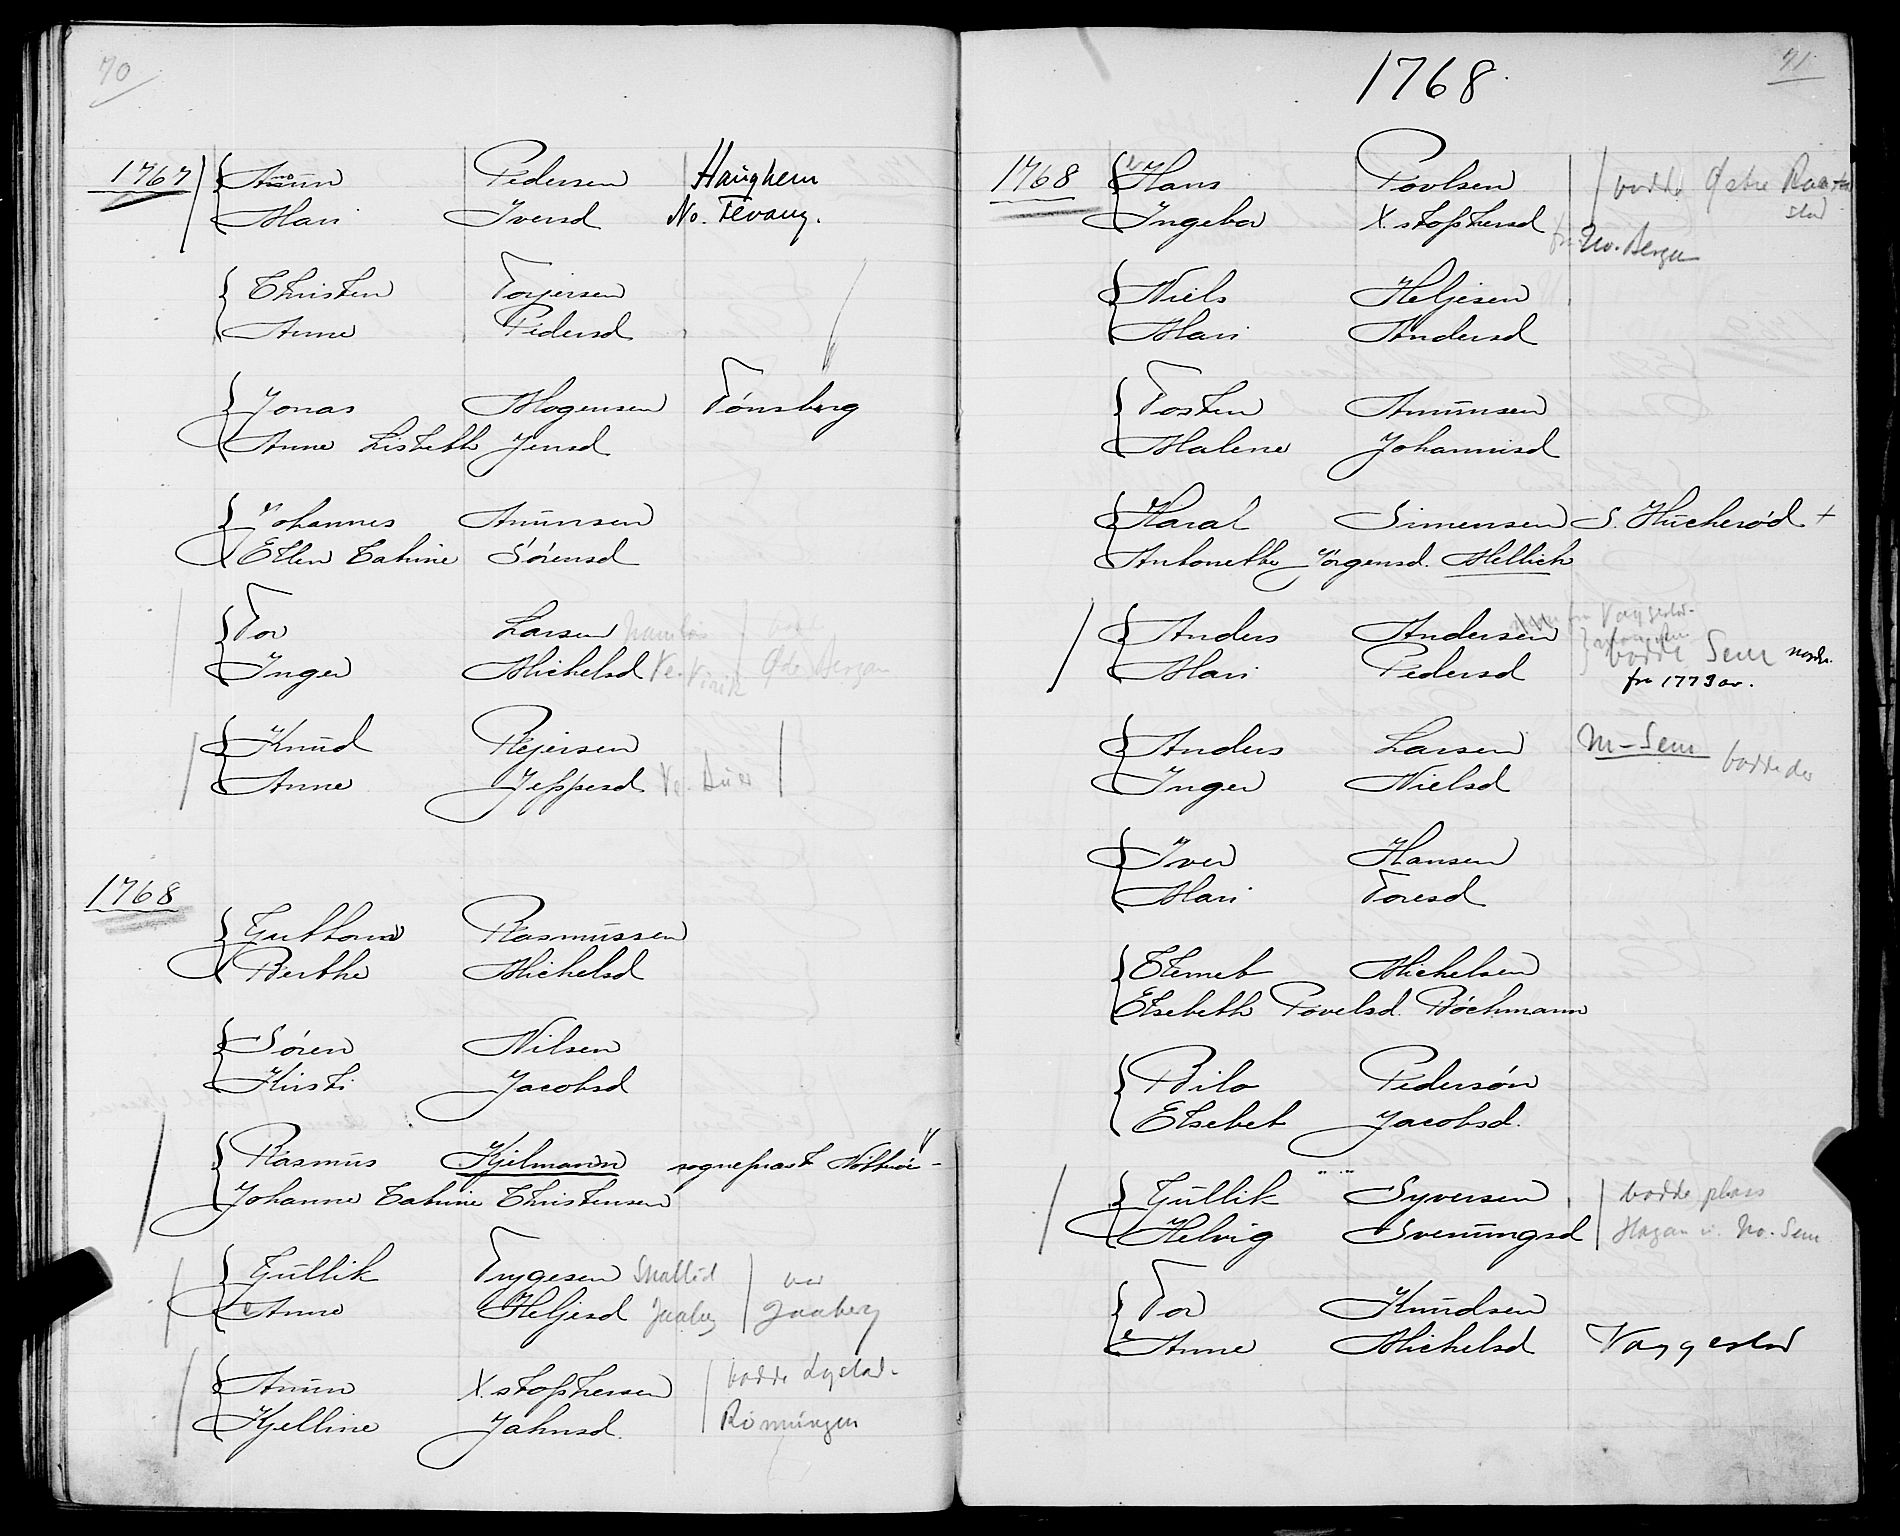 70
1767 Amun Pedersen Haughem
Mari Iversd No. Fevang.
Christen Torjersen
Anne Pedersd
Jonas Mogensen Tönsberg
Anne Lisbeth Jensd
Johannes Amunsen
Ellen Catrine Sörensd
Tor Larsen
Inger Michelsd Ve. Virik Østre Bergan
Knud Rejersen
Anne Jeppesd Ve.
1768
Guthorm Rasmussen
Berthe Michelsd
Sören Nilsen
Kirsti Jacobsd
Rasmus Kjelmann sogneprest Nötterö
Johanne Catrine Christensen
Gullik Trygesen
Anne Heljesd Jaaberg Jaaberg
Amun X.stophersen bodde Lystad-
Kjelline Jahnsd. Rönningen
71
1768.
1768 Hans Povlsen bodde Østre Raastad
Ingebor X.stophersd fra No. Bergan
Niels Heljesen
Mari Andersd
Tosten Amunsen
Malene Johannisd
Haral Simensen S. Hucheröd +
Antonethe Jörgensd. Mellich
Anders Andersen fra Vaggestad
Mari Pedersd bodde Sem nordre
fra 1773 av.
Anders Larsen M-Sem
Inger Nielsd bodde der
Iver Hansen
Mari Toresd
Clemet Michelsen
Elsebeth Povelsd. Böchmann
Bilo Pedersön
Elsebet Jacobsd.
Gullik Syversen bodde plass
Helvig Svenungsd Hagan u. No. Sem
Tor Knudsen
Anne Michelsd Vaggestad